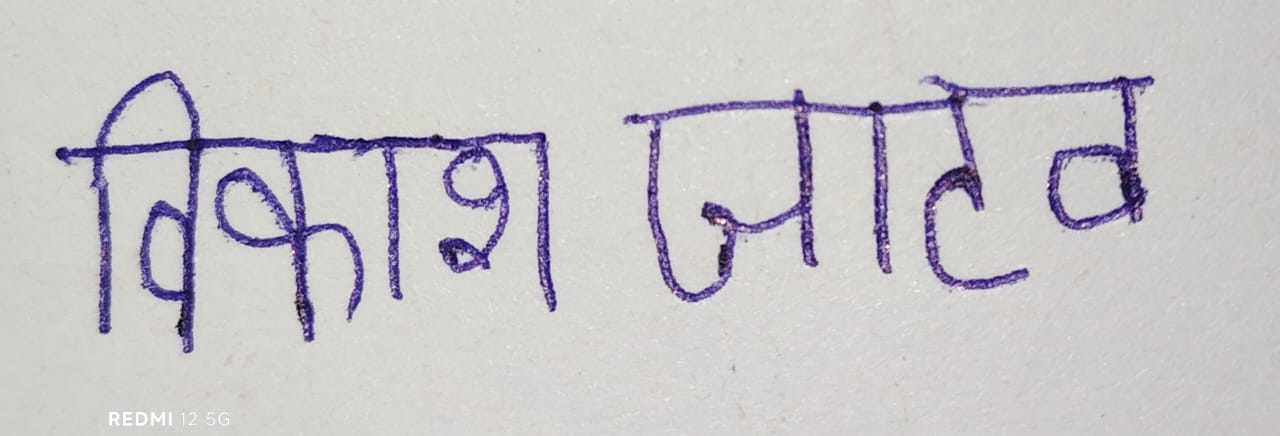 विकाश जाटव
REDMI 12 5G